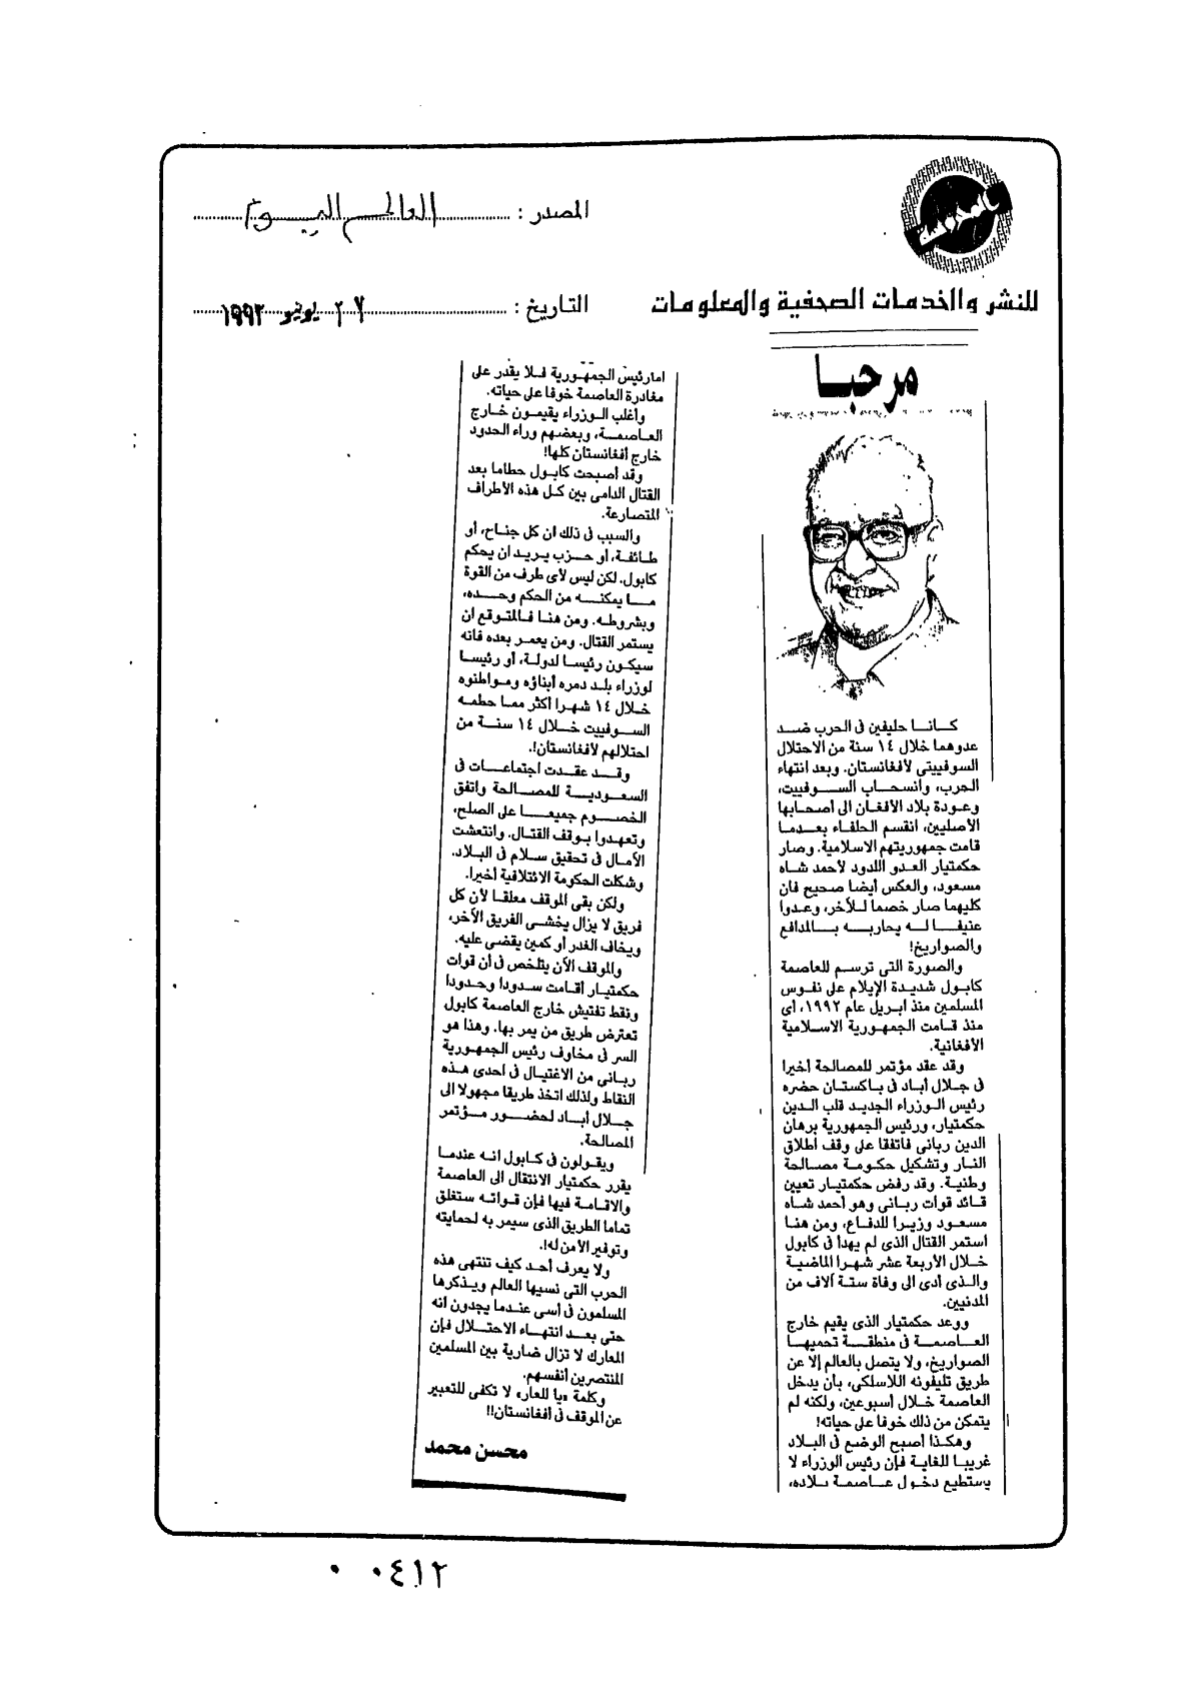 المصدر : العالم اليوم
للنشر والخدمات الصحفية والمعلومات
التاريخ : ٢٧ يونيو ١٩٩٣
مرحبا
كانا حليفين فى الحرب ضد
عدوهما خلال ١٤ سنة من الاحتلال
السوفييتى لأفغانستان. وبعد انتهاء
الحرب، وانسحاب السوفييت،
وعودة بلاد الأفغان الى أصحابها
الأصليين، انقسم الحلفاء بعدما
قامت جمهوريتهم الاسلامية. وصار
حكمتيار العدو اللدود لأحمد شاه
مسعود، والعكس أيضا صحيح فان
كليهما صار خصما للأخر، وعدوا
عنيفا له يحاربه بالمدافع
والصواريخ!
والصورة التى ترسم للعاصمة
كابول شديدة الإيلام على نفوس
المسلمين منذ ابريل عام ١٩٩٢، أى
منذ قامت الجمهورية الاسلامية
الأفغانية.
وقد عقد مؤتمر للمصالحة أخيرا
فى جلال أباد فى باكستان حضره
رئيس الوزراء الجديد قلب الدين
حكمتيار، ورئيس الجمهورية برهان
الدين ربانى فاتفقا على وقف اطلاق
النار وتشكيل حكومة مصالحة
وطنية. وقد رفض حكمتيار تعيين
قائد قوات ربانى وهو أحمد شاه
مسعود وزيرا للدفاع، ومن هنا
استمر القتال الذى لم يهدا فى كابول
خلال الأربعة عشر شهرا الماضية
والذى أدى الى وفاة ستة آلاف من
المدنيين.
ووعد حكمتيار الذى يقيم خارج
العاصمة فى منطقة تحميها
الصواريخ، ولا يتصل بالعالم إلا عن
طريق تليفونه اللاسلكى، بأن يدخل
العاصمة خلال أسبوعين، ولكنه لم
يتمكن من ذلك خوفا على حياته!
وهكذا أصبح الوضع فى البلاد
غريبا للغاية فإن رئيس الوزراء لا
يستطيع دخول عاصمة بلاده،
اما رئيس الجمهورية فلا يقدر على
مغادرة العاصمة خوفا على حياته.
وأغلب الوزراء يقيمون خارج
العاصمة، وبعضهم وراء الحدود
خارج أفغانستان كلها!
وقد أصبحت كابول حطاما بعد
القتال الدامى بين كل هذه الأطراف
المتصارعة.
والسبب فى ذلك ان كل جناح، أو
طائفة، أو حزب يريد ان يحكم
كابول. لكن ليس لأى طرف من القوة
ما يمكنه من الحكم وحده،
وبشروطه. ومن هنا فالمتوقع ان
يستمر القتال. ومن يعمر بعده فانه
سيكون رئيسا لدولة، أو رئيسا
لوزراء بلد دمره أبناؤه ومواطنوه
خلال ١٤ شهرا أكثر مما حطمه
السوفييت خلال ١٤ سنة من
احتلالهم لأفغانستان!.
وقد عقدت اجتماعات فى
السعودية للمصالحة واتفق
الخصوم جميعا على الصلح،
وتعهدوا بوقف القتال. وانتعشت
الأمال فى تحقيق سلام فى البلاد.
وشكلت الحكومة الائتلافية أخيرا.
ولكن بقى الموقف معلقا لأن كل
فريق لا يزال يخشى الفريق الأخر،
ويخاف الغدر أو كمين يقضى عليه.
والموقف الأن يتلخص فى أن قوات
حكمتيار أقامت سدودا وحدودا
ونقط تفتيش خارج العاصمة كابول
تعترض طريق من يمر بها. وهذا هو
السر فى مخاوف رئيس الجمهورية
ربانى من الاغتيال فى احدى هذه
النقاط ولذلك اتخذ طريقا مجهولا الى
جلال أباد لحضور مؤتمر
المصالحة.
ويقولون فى كابول انه عندما
يقرر حكمتيار الانتقال الى العاصمة
والاقامة فيها فإن قواته ستغلق
تماما الطريق الذى سيمر به لحمايته
وتوفير الأمن له!.
ولا يعرف أحد كيف تنتهى هذه
الحرب التى نسيها العالم ويذكرها
المسلمون فى أسى عندما يجدون انه
حتى بعد انتهاء الاحتلال فإن
المعارك لا تزال ضارية بين المسلمين
المنتصرين أنفسهم.
وكلمة «يا للعار» لا تكفى للتعبير
عن الموقف فى أفغانستان!!
محسن محمد
٠٠٤١٢